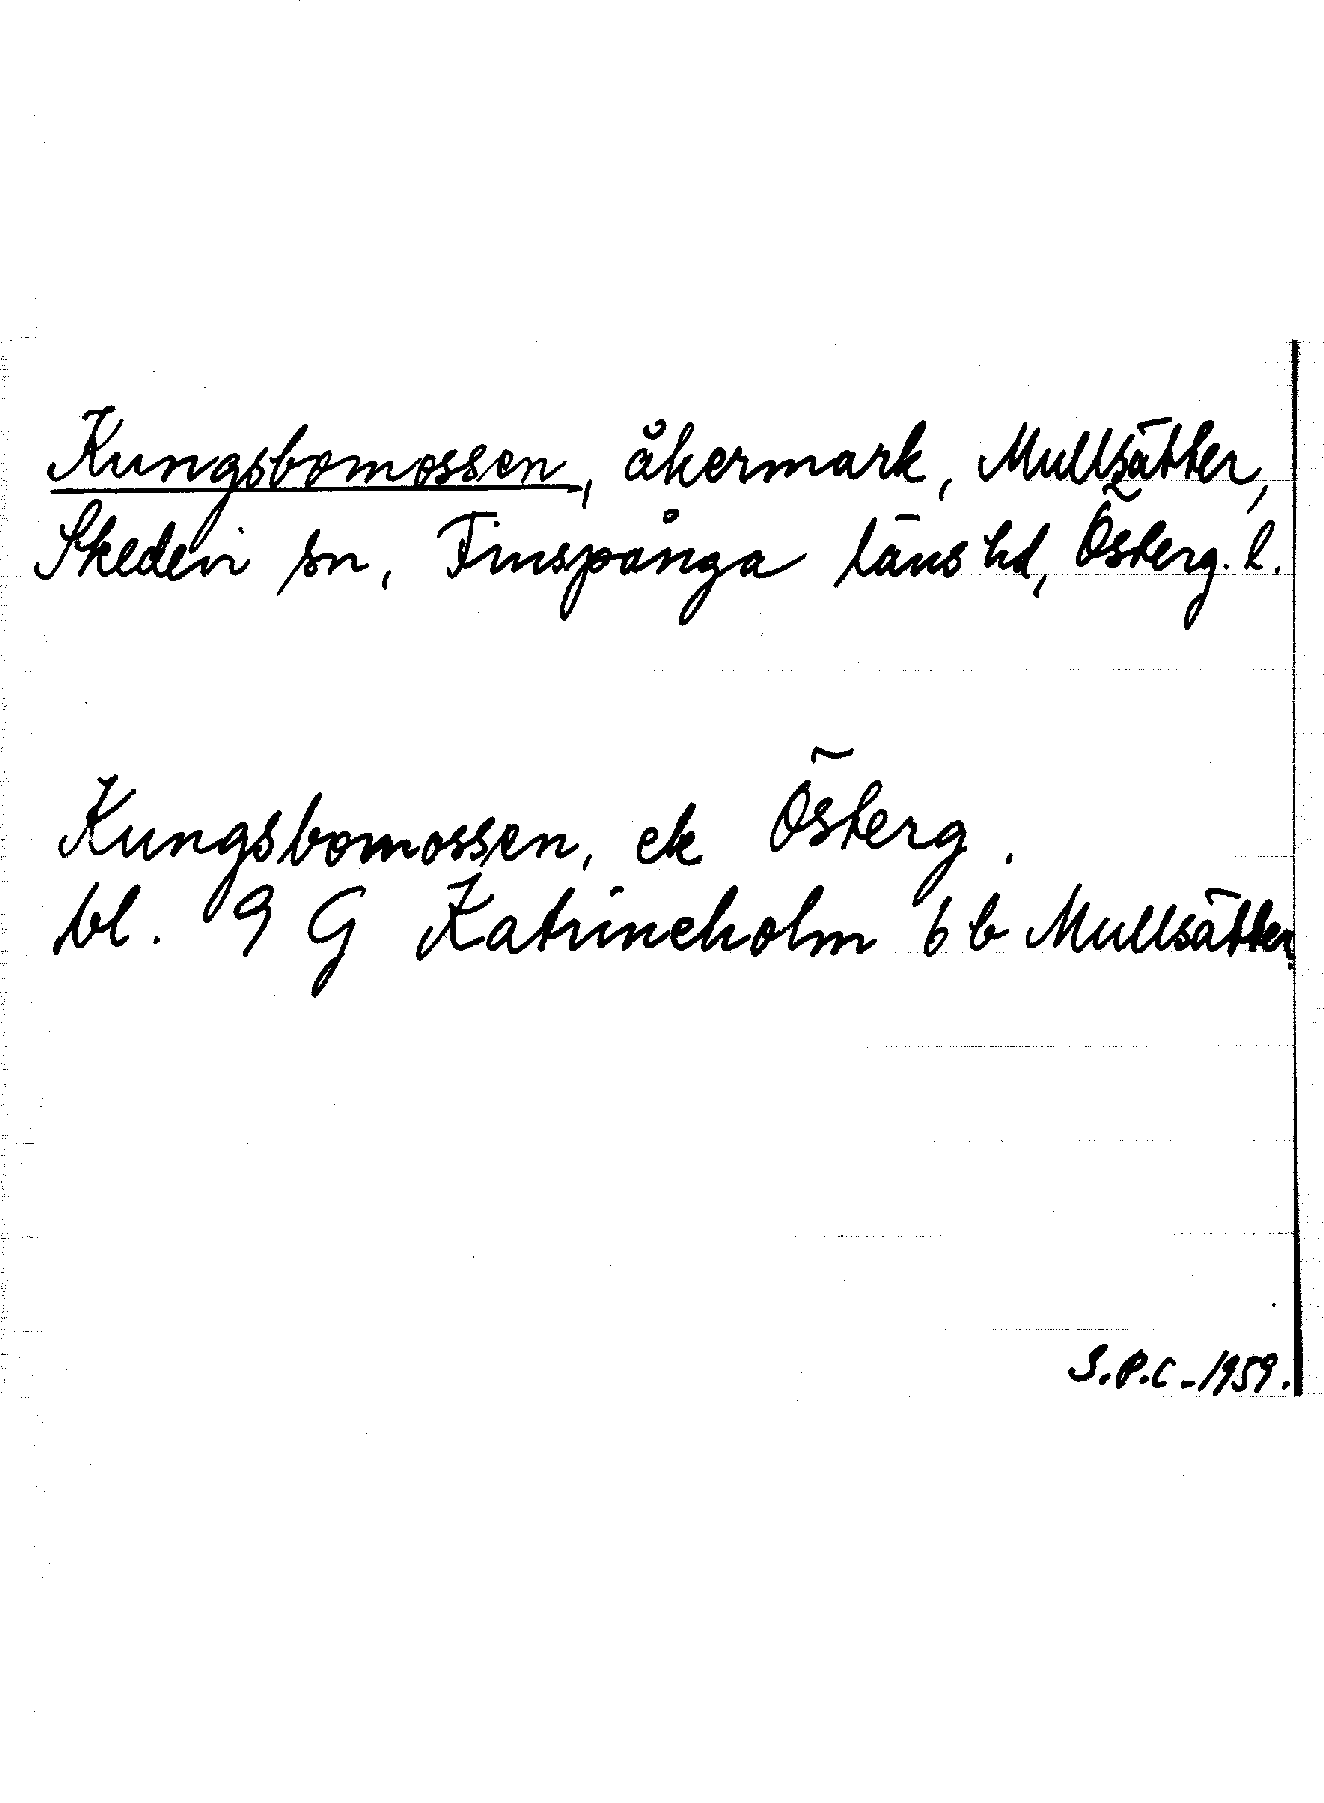 Kungsbomossen, åkermark, Mullsätter,
Skedevi sn, Finspånga läns hd, Österg. l.
Kungsbomossen, ek Österg.
bl. 9 G Katrineholm 6 b Mullsätter.
S.P.C - 1959.